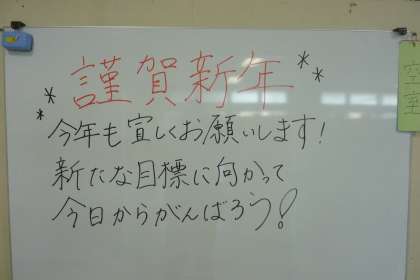 謹賀新年
今年も宜しくお願いします!
新たな目標に向かって
今日からがんばろう!